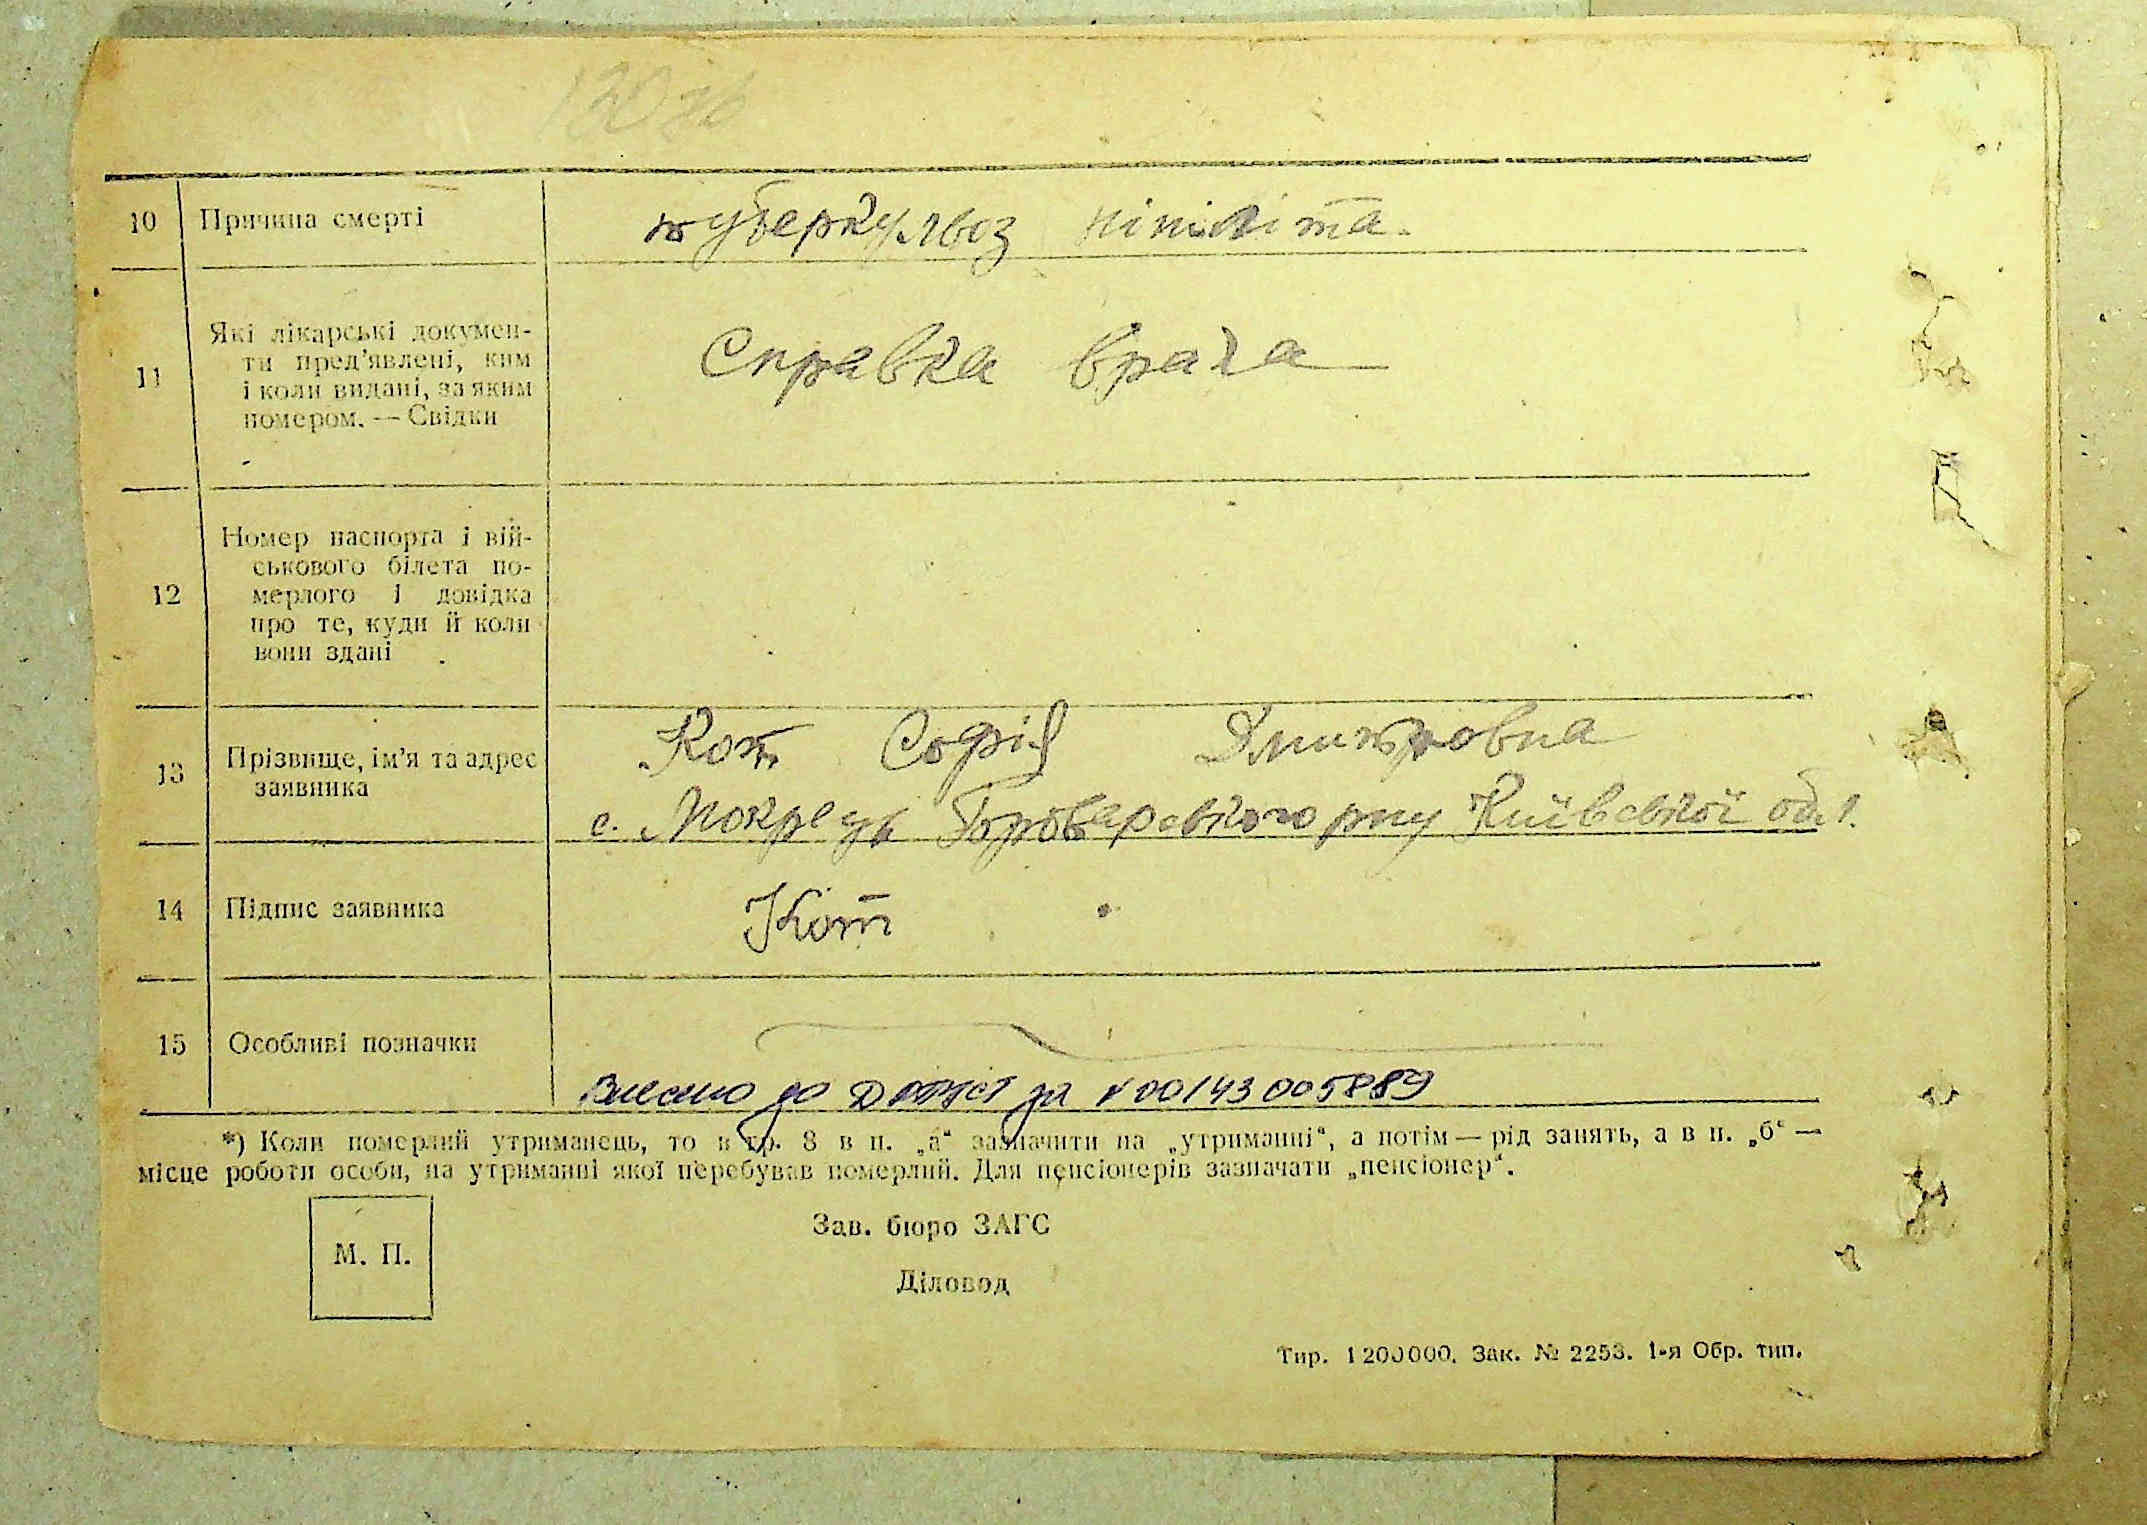 10 Причина смерті туберкульоз
11 Які лікарські докумен-
ти пред’явлені, ким
і коли видані, за яким
номером. — Свідки
Справка врача
12 Номер паспорта і вій-
ськового білета по-
мерлого і довідка
про те, куди й коли
вони здані
13 Прізвище, ім’я та адрес
заявника
Кот Софія Дмитровна
с. Мокрець Броварського р-ну Київської обл.
14 Підпис заявника Кот
15 Особливі позначки
Внесено до ДРАЦСГ за №00143005889
*) Коли померлий утриманець, то в гр. 8 в п. „а“ зазначити на „утриманні“, а потім — рід занять, а в п. „б“ —
місце роботи особи, на утриманні якої перебував померлий. Для пенсіонерів зазначати „пенсіонер“.
М. П.
Зав. бюро ЗАГС
Діловод
Тир. 1200000. Зак. № 2253. 1-я Обр. тип.